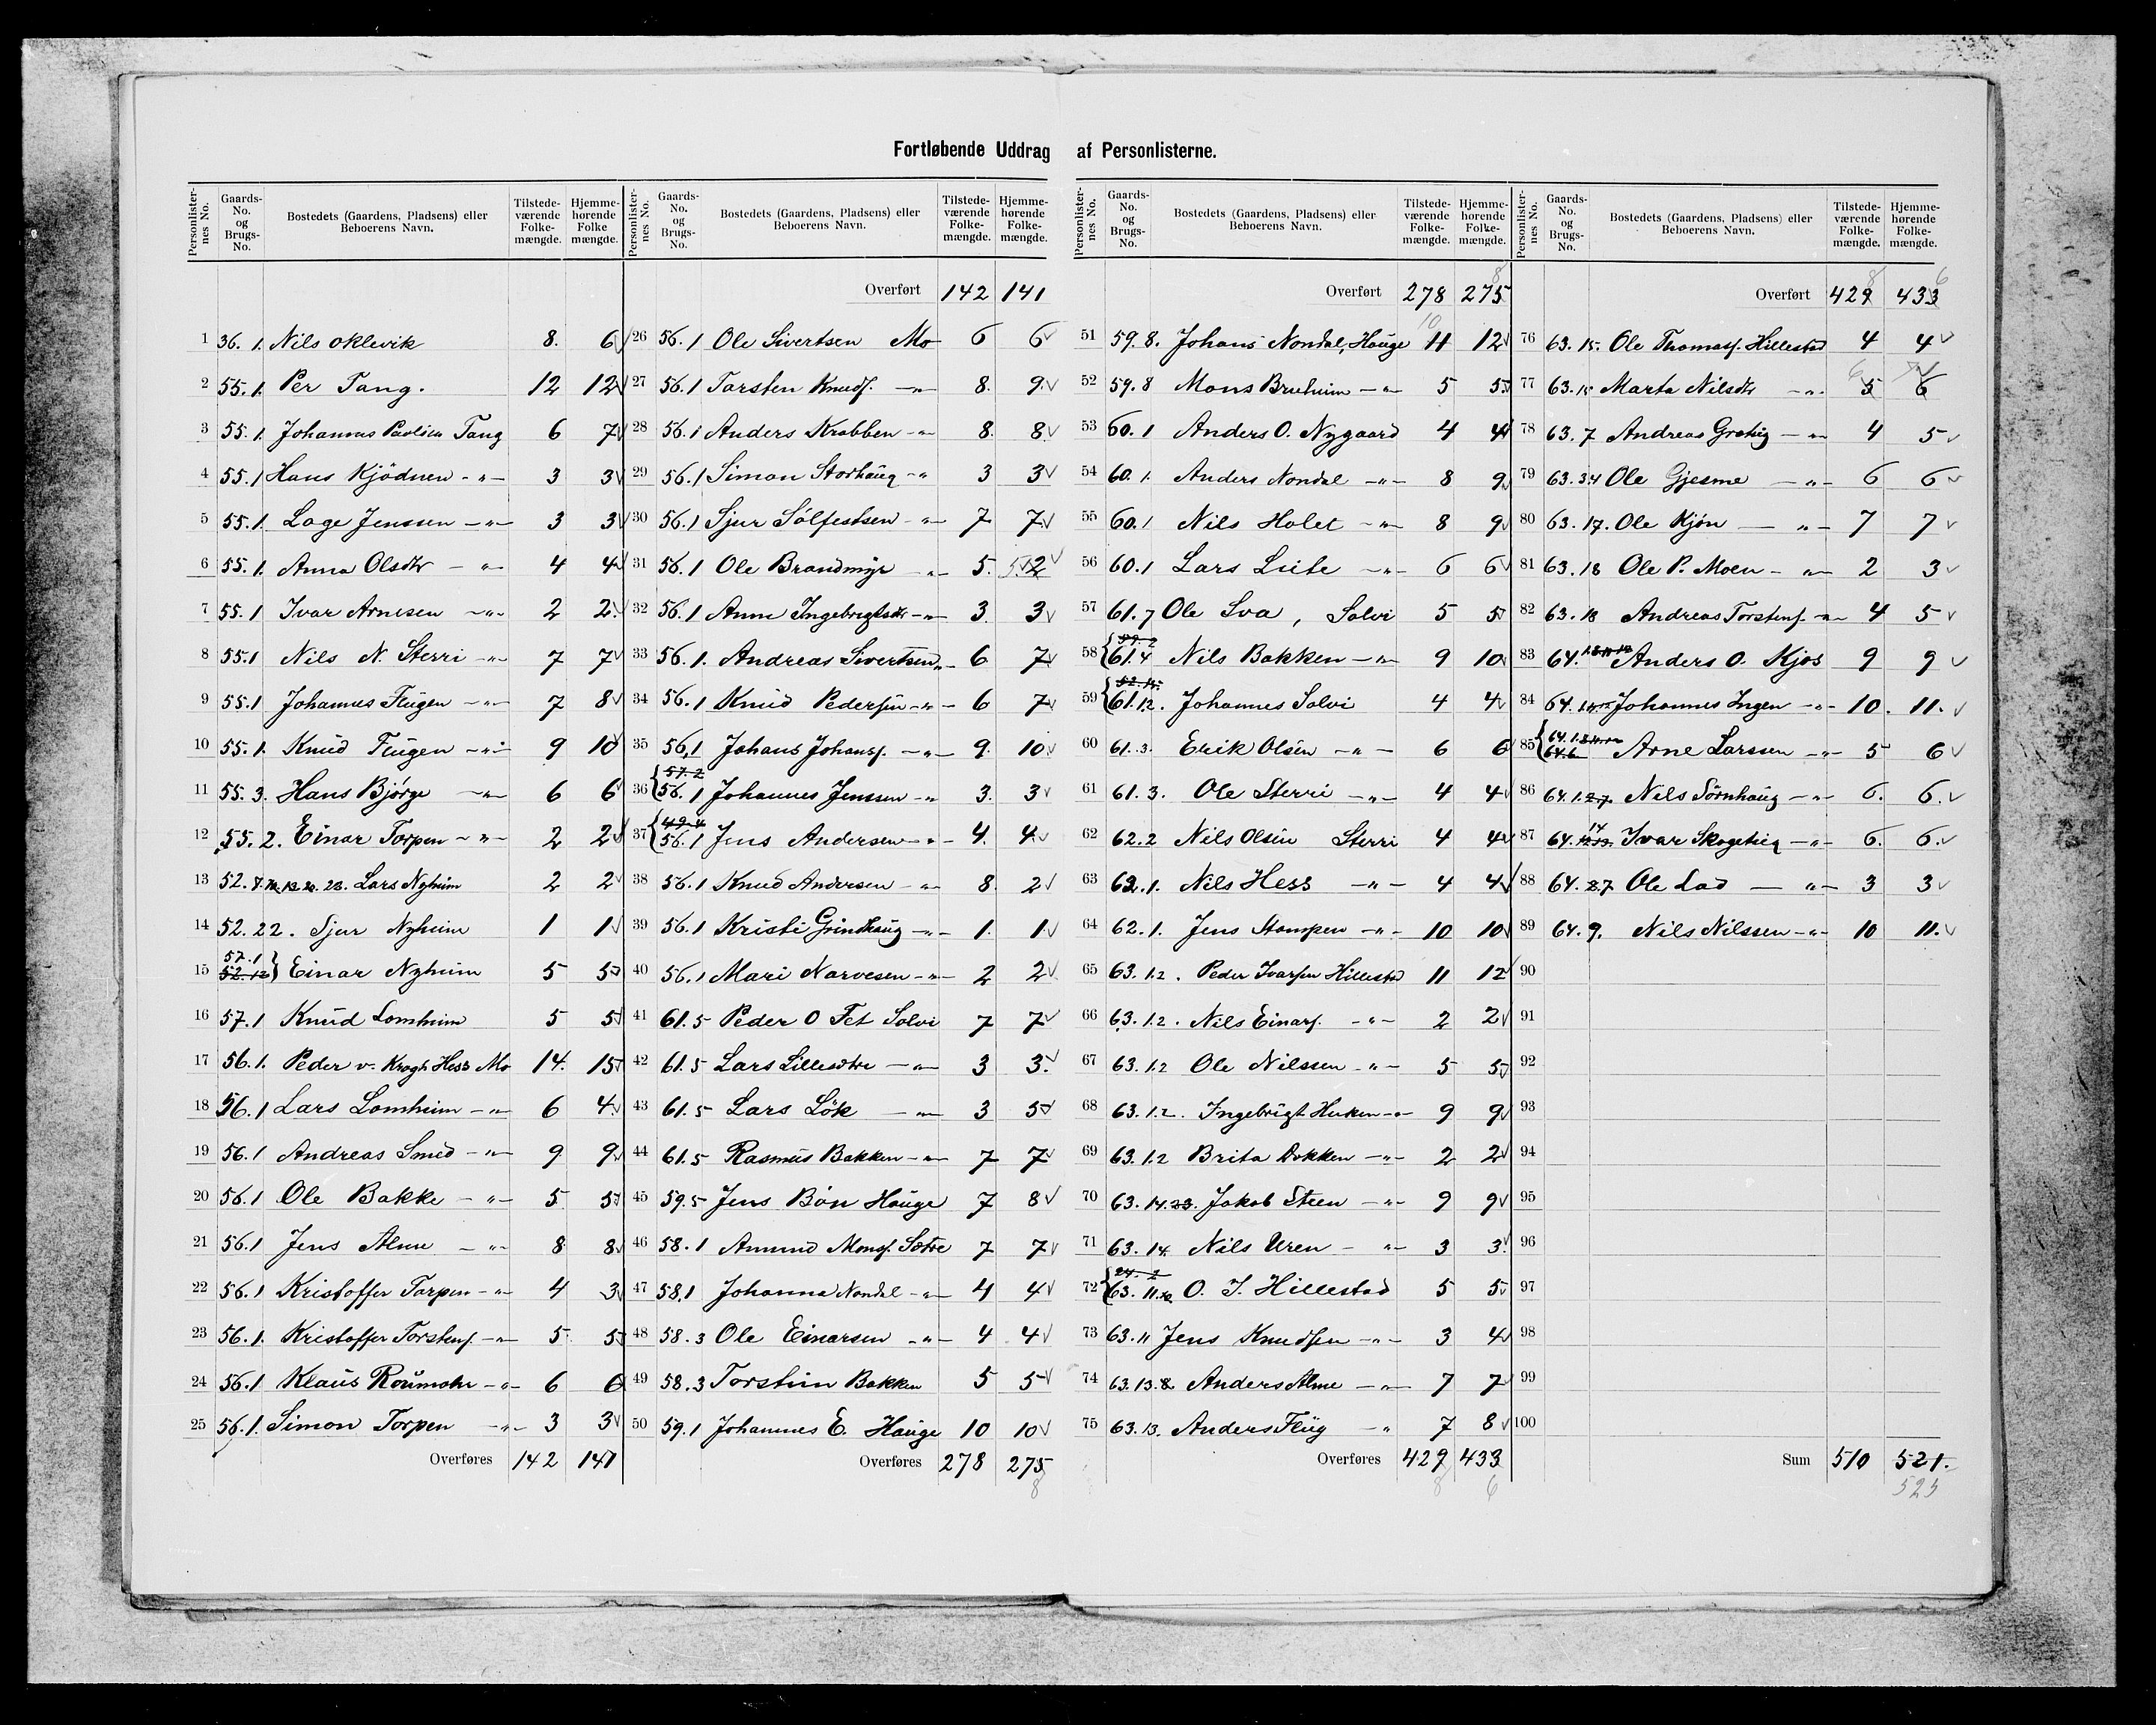 Fortløbende Uddrag af Personlisterne.
Personlister-nes No. Gaards-No. og Brugs-No. Bostedets (Gaardens, Pladsens) eller Beboerens Navn. Tilstede-værende Folke-mængde. Hjemme-hørende Folke mængde.
1 36. 1. Nils Oklevik 8. 6
2 55. 1. Per Tang. 12 12
3 55. 1. Johannes Paulsen Tang 6 7
4 55. 1 Hans Kjödnen -"- 3 3
5 55. 1. Lage Jenssen -"- 3 3
6 55. 1. Anna Olsdtr -"- 4 4
7 55. 1 Ivar Arnesen -"- 2 2
8 55.1 Nils N. Sterri -"- 7 7
9 55.1 Johannes Flugen -"- 7 8
10 55. 1. Knud Flugen -"- 9 10
11 55. 3. Hans Bjørge -"- 6 6
12 55. 2. Einar Torpen -"- 2 2
13 52. Lars Nyheim 2 2
14 52. 22. Sjur Nyheim 1 1
15 57. 1 52. 12 Einar Nyheim 5 5
16 57. 1 Knud Lomheim 5 5
17 56. 1. Peder v. Krogh Hess Mo 14. 15
18 56. 1 Lars Lomheim -"- 6 4
19 56. 1 Andreas Smed -"- 9 9
20 56. 1 Ole Bakke -"- 5 5
21 56.1 Jens Alme -"- 8 8
22 56. 1 Kristoffer Torpen -"- 4 3
23 56. 1. Kristoffer Torstens. -"- 5 5
24 56. 1 Klaus Roumohr -"- 6 6
25 56. 1. Simon Torpen -"- 3 3
Overføres 142 141
Personlister-nes No. Gaards-No. og Brugs-No. Bostedets (Gaardens, Pladsens) eller Beboerens Navn. Tilstede-værende Folke-mængde. Hjemme-hørende Folke-mængde.
Overført 142 141
26 56. 1 Ole Sivertsen Mo 6 6
27 56. 1 Torsten Knuds. -"- 8. 9
28 56. 1 Anders Krabben -"- 8. 8
29 56. 1 Simon Storhaug -"- 3 3
30 56. 1 Sjur Sølfestsen -"- 7 7
31 56. 1 Ole Brandmyr -"- 5. 5 2
32 56. 1 Anne Ingebrigtsdtr -"- 3. 3
33 56. 1. Andreas Sivertsen -"- 6 7
34 56. 1 Knud Pedersen -"- 6 7
35 56,1 Johans Johans. -"- 9. 10
36 57. 2 56. 1 Johannes Jenssen -"- 3. 3
37 49. 4 56. 1 Jens Andersen -"- 4. 4
38 56. 1 Knud Andersen -"- 8. 2
39 56. 1 Kristi Grindhaug -"- 1. 1
40 56. 1 Mari Narvesen -"- 2 2
41 61. 5 Peder O Fet Solvi 7 7
42 61. 5 Lars Lillesætre -"- 3 3
43 61. 5 Lars Lök -"- 3 5
44 61. 5 Rasmus Bakken -"- 7 7
45 59. 5 Jens Bön Hauge 7 8
46 58. 1 Amund Mons. Sætre 7 7
47 58.1 Johanna Nondal -"- 4 4
48 58. 3 Ole Einarsen -"- 4 4
49 58. 3 Torstein Bakken 5 5
50 59. 1 Johannes E. Hauge 10 10
Overføres 278 275
8
Personlister-nes No. Gaards-No. og Brugs-No. Bostedets (Gaardens, Pladsens) eller Beboerens Navn. Tilstede-værende Folke-mængde. Hjemme-hørende Folke-mængde.
8
Overført 278 275
10
51 59. 8. Johans Nondal, Hauge 11 12
52 59. 8 Mons Bruheim -"- 5 5
53 60. 1 Anders O. Nygaard 4 4
54 60. 1. Anders Nondal -"- 8 9
55 60. 1 Nils Holet -"- 8 9
56 60. 1 Lars Leite -"- 6 6
57 61. 7 Ole Sva, Solvi 5 5
58 59. 2 61. 4 Nils Bakken -"- 9 10
59 61. 12. Johannes Solvi 4 4
60 61. 3. Erik Olsen -"- 6 6
61 61. 3. Ole Sterri -"- 4 4
62 62. 2 Nils Olsen Sterri 4 4
63 62. 1. Nils Hess -"- 4 4
64 62. 1. Jens Stampen -"- 10 10
65 63. 1.2. Peder Ivarsen Hillestad 11 12
66 63. 1.2. Nils Einars. -"- 2 2
67 63. 1.2 Ole Nilssen -"- 5 5
68 63. 1.2. Ingebrigt Heken -"- 9 9
69 63. 1.2 Brita Dokken -"- 2 2
70 63. 14. 23. Jakob Steen -"- 9 9
71 63. 14. Nils Uren -"- 3 3
72 24. 2 63. 11. O. J. Hillestad 5 5
73 63. 11 Jens Knudsen -"- 3 4
74 63. 13. 8. Anders Alme -"- 7 7
75 63. 13. Anders Flug -"- 7 8
Overføres 429 433
8 6
Personlister-nes No. Gaards-No. og Brugs-No. Bostedets (Gaardens, Pladsens) eller Beboerens Navn. Tilstede-værende Folke-mængde. Hjemme-hørende Folke-mængde.
8 6
Overført 429 433
76 63. 15. Ole Thomass. Hillestad 4 4
77 63. 15 Marta Nilsdtr -"- 6 5 6
78 63. 7 Andreas Grohig -"- 4 5
79 63. 3.4 Ole Gjesme -"- 6 6
80 63. 17. Ole Kjön -"- 7 7
81 63. 18 Ole P. Moen -"- 2 3
82 63. 18 Andreas Torstens. -"- 4 5
83 64. Anders O. Kjos 9 9
84 64. Johannes Ingen -"- 10. 11.
85 64. 64. 6 Arne Larssen -"- 5 6
86 64. 1. 2.7. Nils Sörnhaug -"- 6. 6.
87 64. 14 Ivar Skogetieg -"- 6. 6.
88 64. 8.7 Ole Lad -"- 3 3
89 64. 9. Nils Nilssen -"- 10 11.
90
91
92
93
94
95
96
97
98
99
100
Sum 510 521.
525